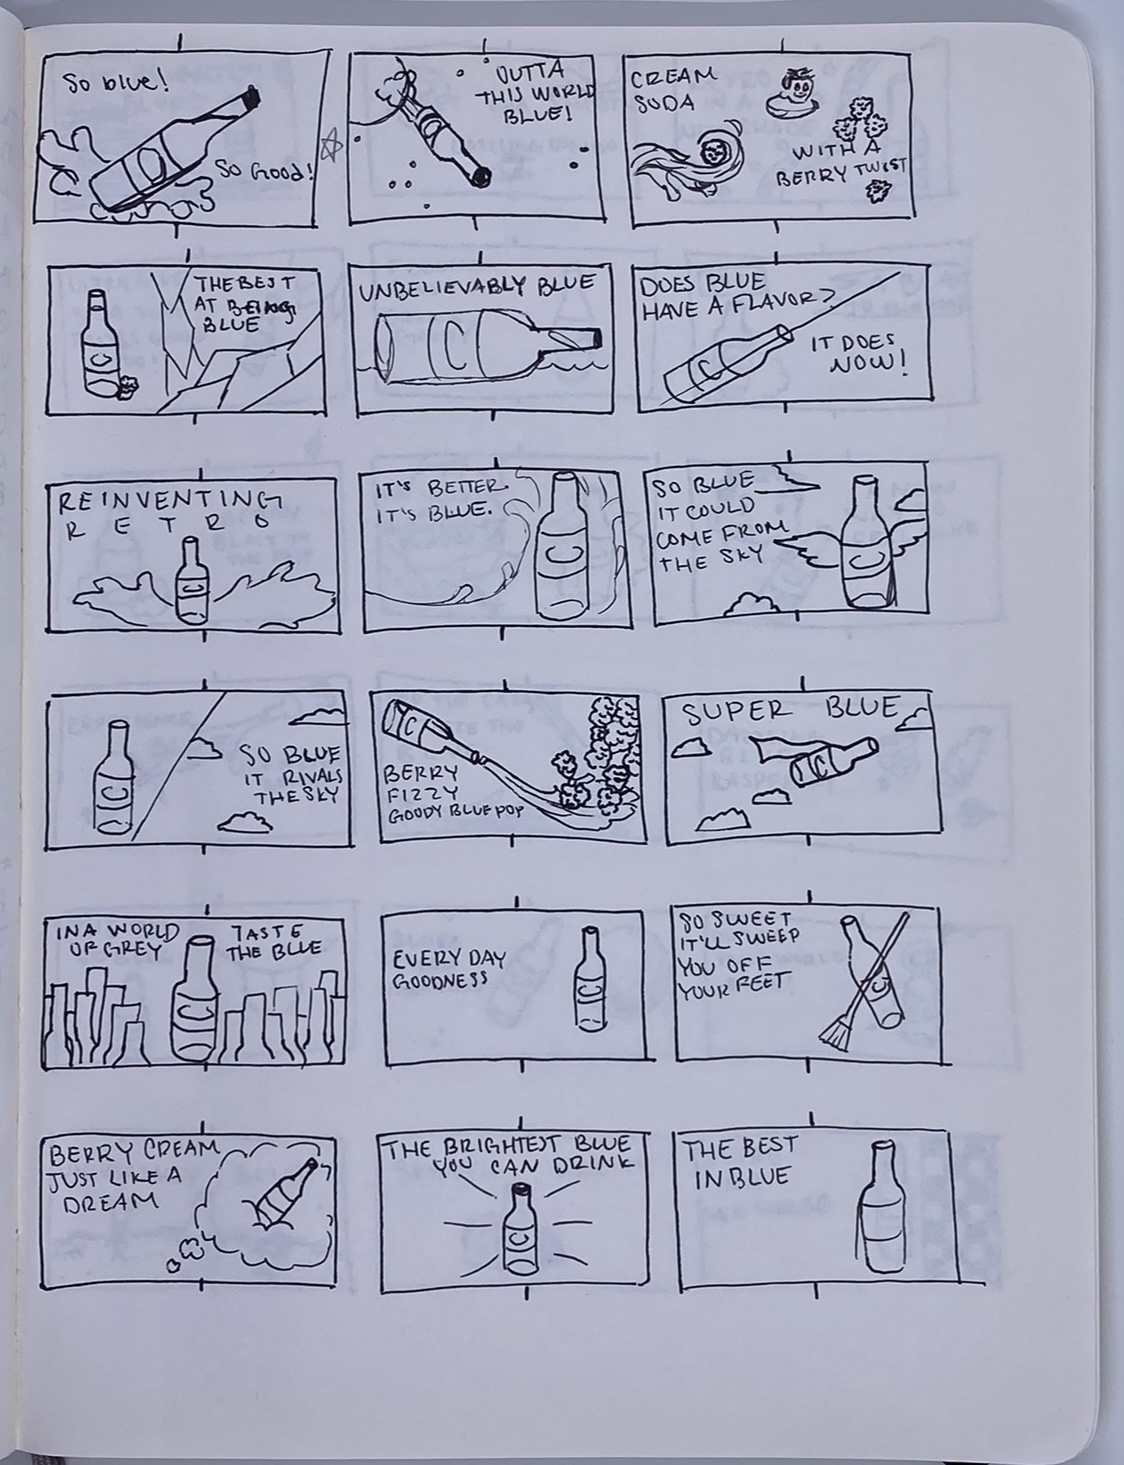 So blue!
So Good!
OUTTA
THIS WORLD
BLUE!
CREAM
SODA
WITH A
BERRY TWIST
THE BEST
AT BEING
BLUE
C
UNBELIEVABLY BLUE
C
DOES BLUE
HAVE A FLAVOR?
IT DOES
NOW!
C
REINVENTING
RETRO
C
IT'S BETTER.
IT'S BLUE.
C
SO BLUE
IT COULD
COME FROM
THE SKY
C
SO BLUE
IT RIVALS
THE SKY
C
C
BERRY
FIZZY
GOODY BLUE POP
SUPER BLUE
C
IN A WORLD
OF GREY
TASTE
THE BLUE
C
EVERY DAY
GOODNESS
C
SO SWEET
IT'LL SWEEP
YOU OFF
YOUR FEET
C
BERRY CREAM
JUST LIKE A
DREAM
C
THE BRIGHTEST BLUE
YOU CAN DRINK
C
THE BEST
IN BLUE